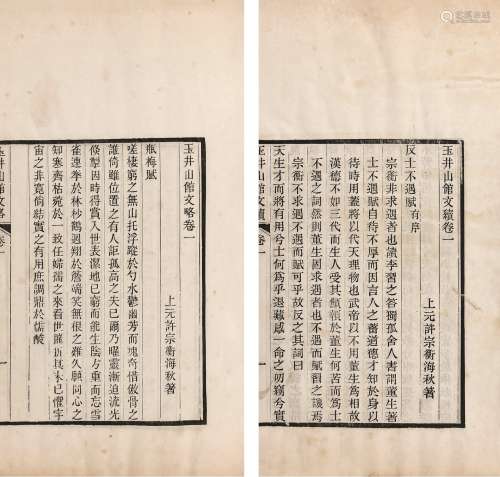 玉井山館文續卷一
上元許宗衡海秋著
反士不遇賦有序
宗衡非求遇者也讀李習之答獨孤舍人書謂董生著
士不遇賦自待不厚而因言人之蓄道德才知於身以
待時用蓋將以代天理物也武帝以不用董生爲相故
漢德不如三代而生人受其顦顇於董生何苦而爲士
不遇之詞然則董生不遇可也不遇而賦習之譏焉
宗衡不遇不遇而賦可乎故反之其詞曰
天生才而將有用兮士何爲乎退藏感一命之初竊兮實
玉井山館文續
卷一
一
玉井山館文略卷一
上元許宗衡海秋著
瓶梅賦
嗟棲窮之無山托浮蹤於勺水鬱幽芳而瑰奇惜傲骨之
誰倚雖位置之有人詎孤高之夫已爾乃曜靈漸迫流光
倏掣因時得賞入世表潔地已窮而能生陰方重而忘雪
雀連拳於林杪鶴迴翔於詹嶠笑無根之難久願同心之
知寒齊枯菀於一致任婦孺之來看世雖折其本已懼宇
宙之非寬倘結實之有用庶調鼎於儒酸
玉井山館文略
卷一
一